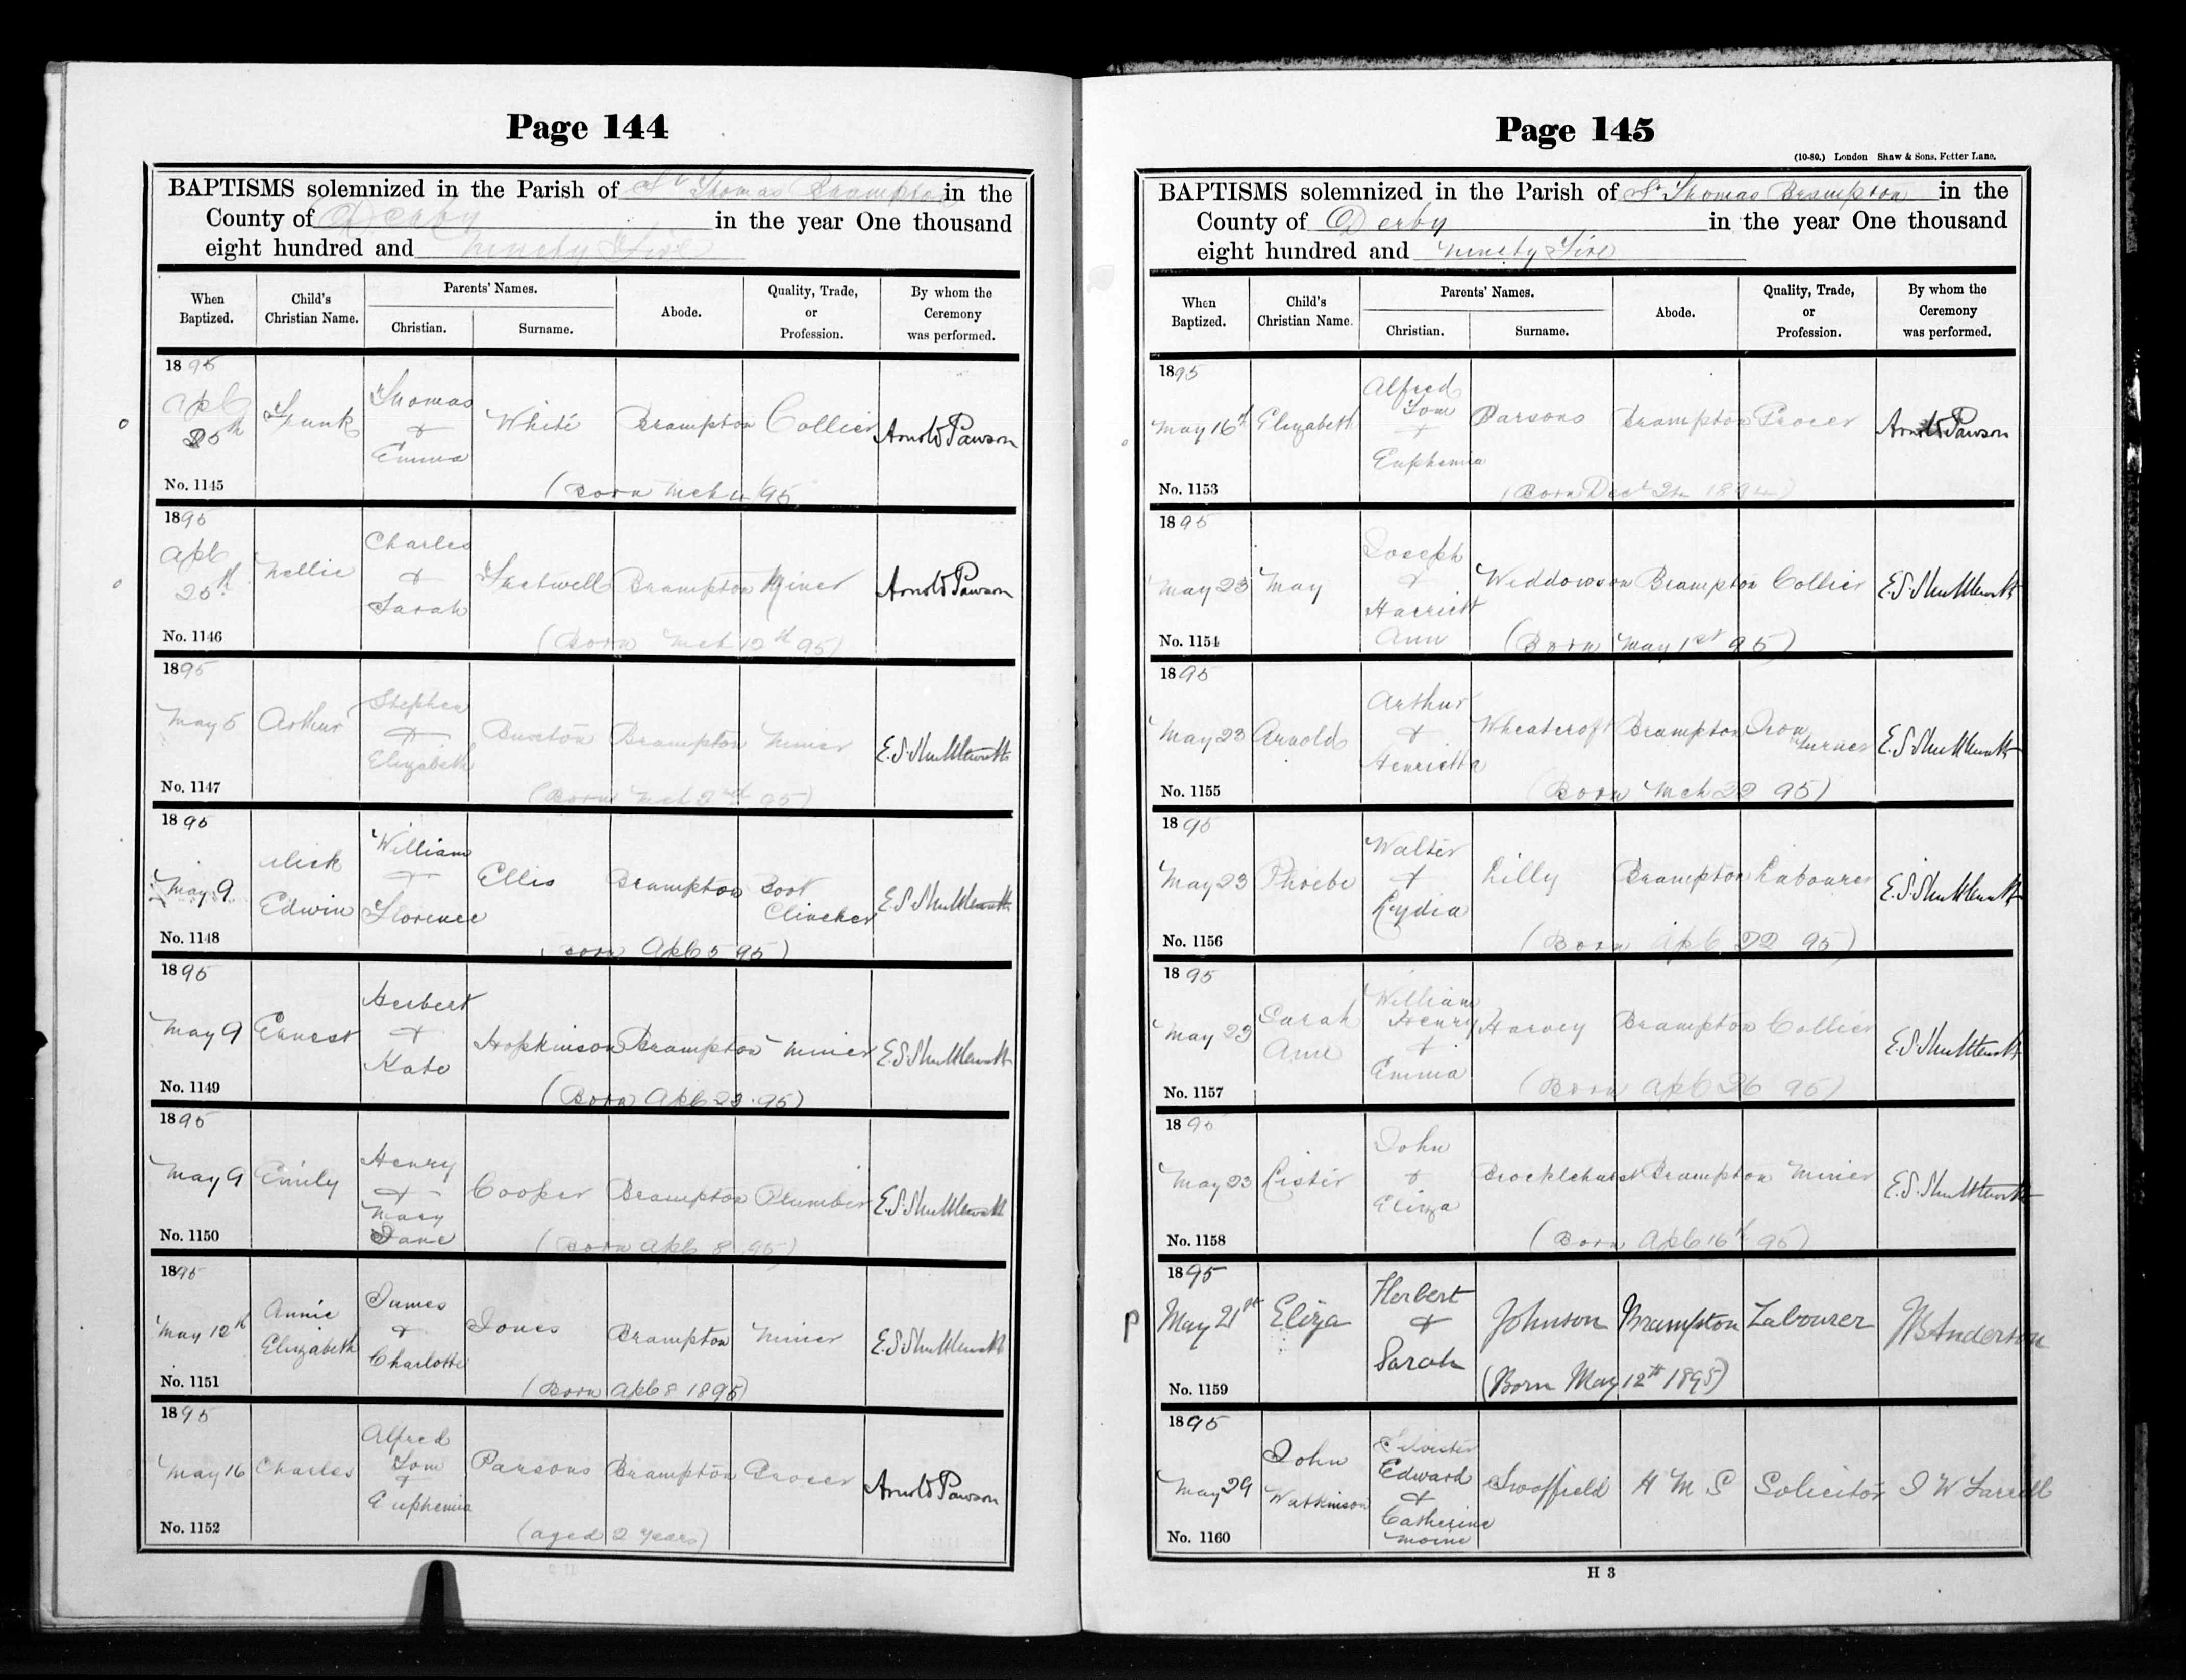 Page 144
BAPTISMS solemnized in the Parish of St Thomas Brampton in the
County of Derby in the year One thousand
eight hundred and ninety Five
When Baptized.
Child's Christian Name.
Parents' Names.
Christian.
Surname.
Abode.
Quality, Trade, or Profession.
By whom the Ceremony was performed.
1895
Apl 25th Frank Thomas + Emma White Brampton Collier Arnold Pawson
No. 1145 (Born Mch 4 95
1895
Apl 25th Nellie Charles + Sarah Brampton Miner Arnold Pawson
No. 1146 (Born Mch 12th 95)
1895
May 5 Arthur Stephen + Elizabeth Buxton Brampton Miner E.S. Shuttleworth
No. 1147 (Born Mch 2nd 95)
1895
May 9 Edwin William + Florence Ellis Brampton Boot Clincher E.S. Shuttleworth
No. 1148 Born Apl 5 95)
1895
May 9 Ernest Herbert + Kate Hopkinson Brampton Miner E.S. Shuttleworth
No. 1149 (Born Apl 23. 95)
1895
May 9 Emily Henry + Mary Jane Cooper Brampton Plumber E.S. Shuttleworth
No. 1150 (Born Apl 8 95)
1895
May 12th Annie Elizabeth James + Charlotte Jones Brampton Miner E.S. Shuttleworth
No. 1151 (Born Apl 8 1895)
1895
May 16 Charles Alfred Tom + Euphemia Parsons Brampton Grocer Arnold Pawson
No. 1152 (aged 2 years)
Page 145
(10-80.) London Shaw & Sons, Fetter Lane.
BAPTISMS solemnized in the Parish of St Thomas Brampton in the
County of Derby in the year One thousand
eight hundred and ninety Five
When Baptized.
Child's Christian Name.
Parents' Names.
Christian.
Surname.
Abode.
Quality, Trade, or Profession.
By whom the Ceremony was performed.
1895
May 16th Elizabeth Alfred Tom + Euphemia Parsons Brampton Grocer Arnold Pawson
No. 1153 (Born Decr 24 1894)
1895
May 23 May Joseph + Harriett Ann Widdowson Brampton Collier E.S. Shuttleworth
No. 1154 (Born May 1st 95)
1895
May 23 Arnold Arthur + Henrietta Wheatcroft Brampton Iron Turner E.S. Shuttleworth
No. 1155 (Born Mch 22 95)
1895
May 23 Phoebe Walter + Lydia Lilly Brampton Labourer E.S. Shuttleworth
No. 1156 (Born Apl 22 95)
1895
May 23 Sarah Ann William Henry + Emma Harvey Brampton Collier E.S. Shuttleworth
No. 1157 (Born Apl 26 95)
1895
May 23 Lister John + Eliza Brocklehurst Brampton Miner E.S. Shuttleworth
No. 1158 (Born Apl 16th 95)
1895
P May 21st Eliza Herbert + Sarah Johnson Brampton Labourer Anderson
No. 1159 (Born May 12th 1895)
1895
May 29 John Watkinson Silvester Edward + Catherine Swoffield H M S Solicitor
No. 1160
H 3